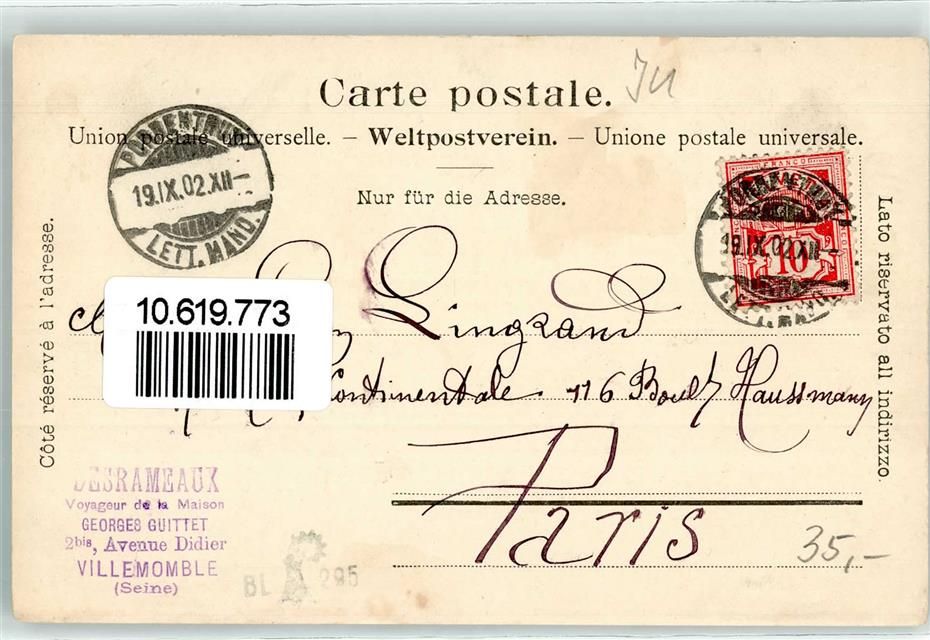 Carte postale.
Union postale universelle. — Weltpostverein. — Unione postale universale.
Nur für die Adresse.
Côté réservé à l'adresse.
Lato riservato all indirizzo.
PORRENTRUY
19.IX.02.XII—
LETT. MAND.
FRANCO
10
PORRENTRUY
19.IX.02.XII—
LETT. MAND.
10.619.773
Lingrand
Continentale 116 Boult Haussmann
Paris
DESRAMEAUX
Voyageur de la Maison
GEORGES GUITTET
2bis, Avenue Didier
VILLEMOMBLE
(Seine)
BL 295
35,-